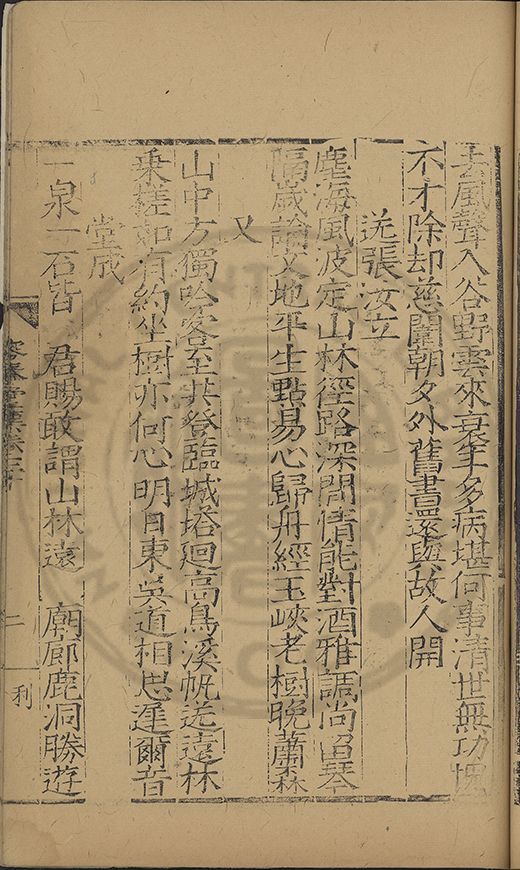 去風聲入谷野雲來衰年多病堪何事清世無功愧
不才除却慈闈朝夕外舊書還與故人開
送張汝立
塵海風波定山林徑路深閒情能對酒雅謌尚留琴
隔歲論文地平生點易心歸舟經玉峽老樹晚蕭森
又
山中方獨吟客至共登臨城塔迴高鳥溪帆送遠林
乗槎如有約坐樹亦何心明日東吳道相思遲爾音
堂成
一泉一石皆 君賜敢謂山林遠 廟廊鹿洞勝遊
容春堂集卷二十
二
利